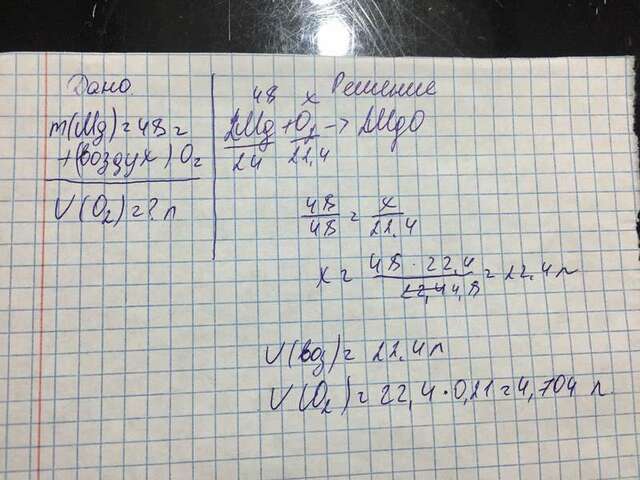 Дано
m(Mg) = 48 г
+(воздух) O2
V(O2) = ? л
Решение
48 x
2Mg + O2 → 2MgO
24 22,4
48/48 = x/22,4
x = 48 · 22,4 / 48 = 22,4 л
V(воз) = 22,4 л
V(O2) = 22,4 · 0,21 = 4,704 л